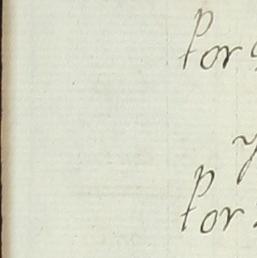 Por
y
Por